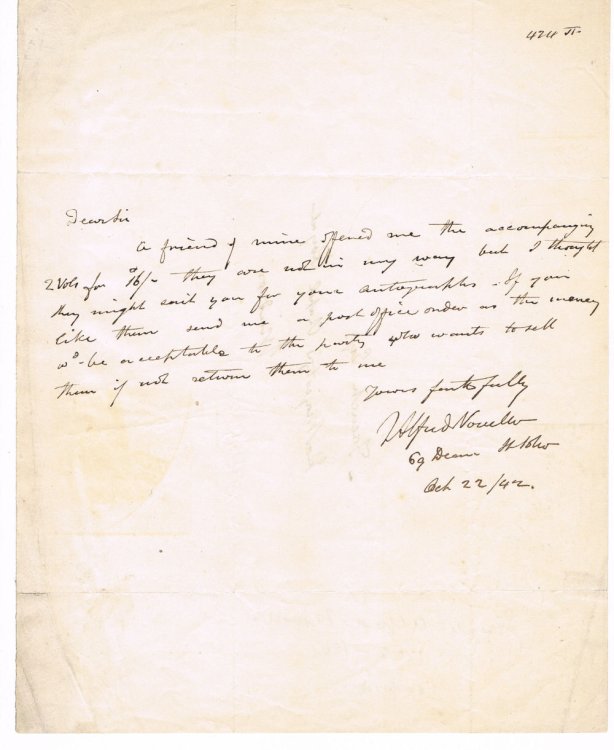 424 II.
Dear Sir
A friend of mine offered me the accompanying
2 Vols for 16/- they are not in my way but I thought
they might suit you for your autographs - If you
like them send me a post office order as the money
wd. be acceptable to the party who wants to sell
them if not return them to me
Yours faithfully
J Alfred Novello
69 Dean St Soho
Oct 22/42.